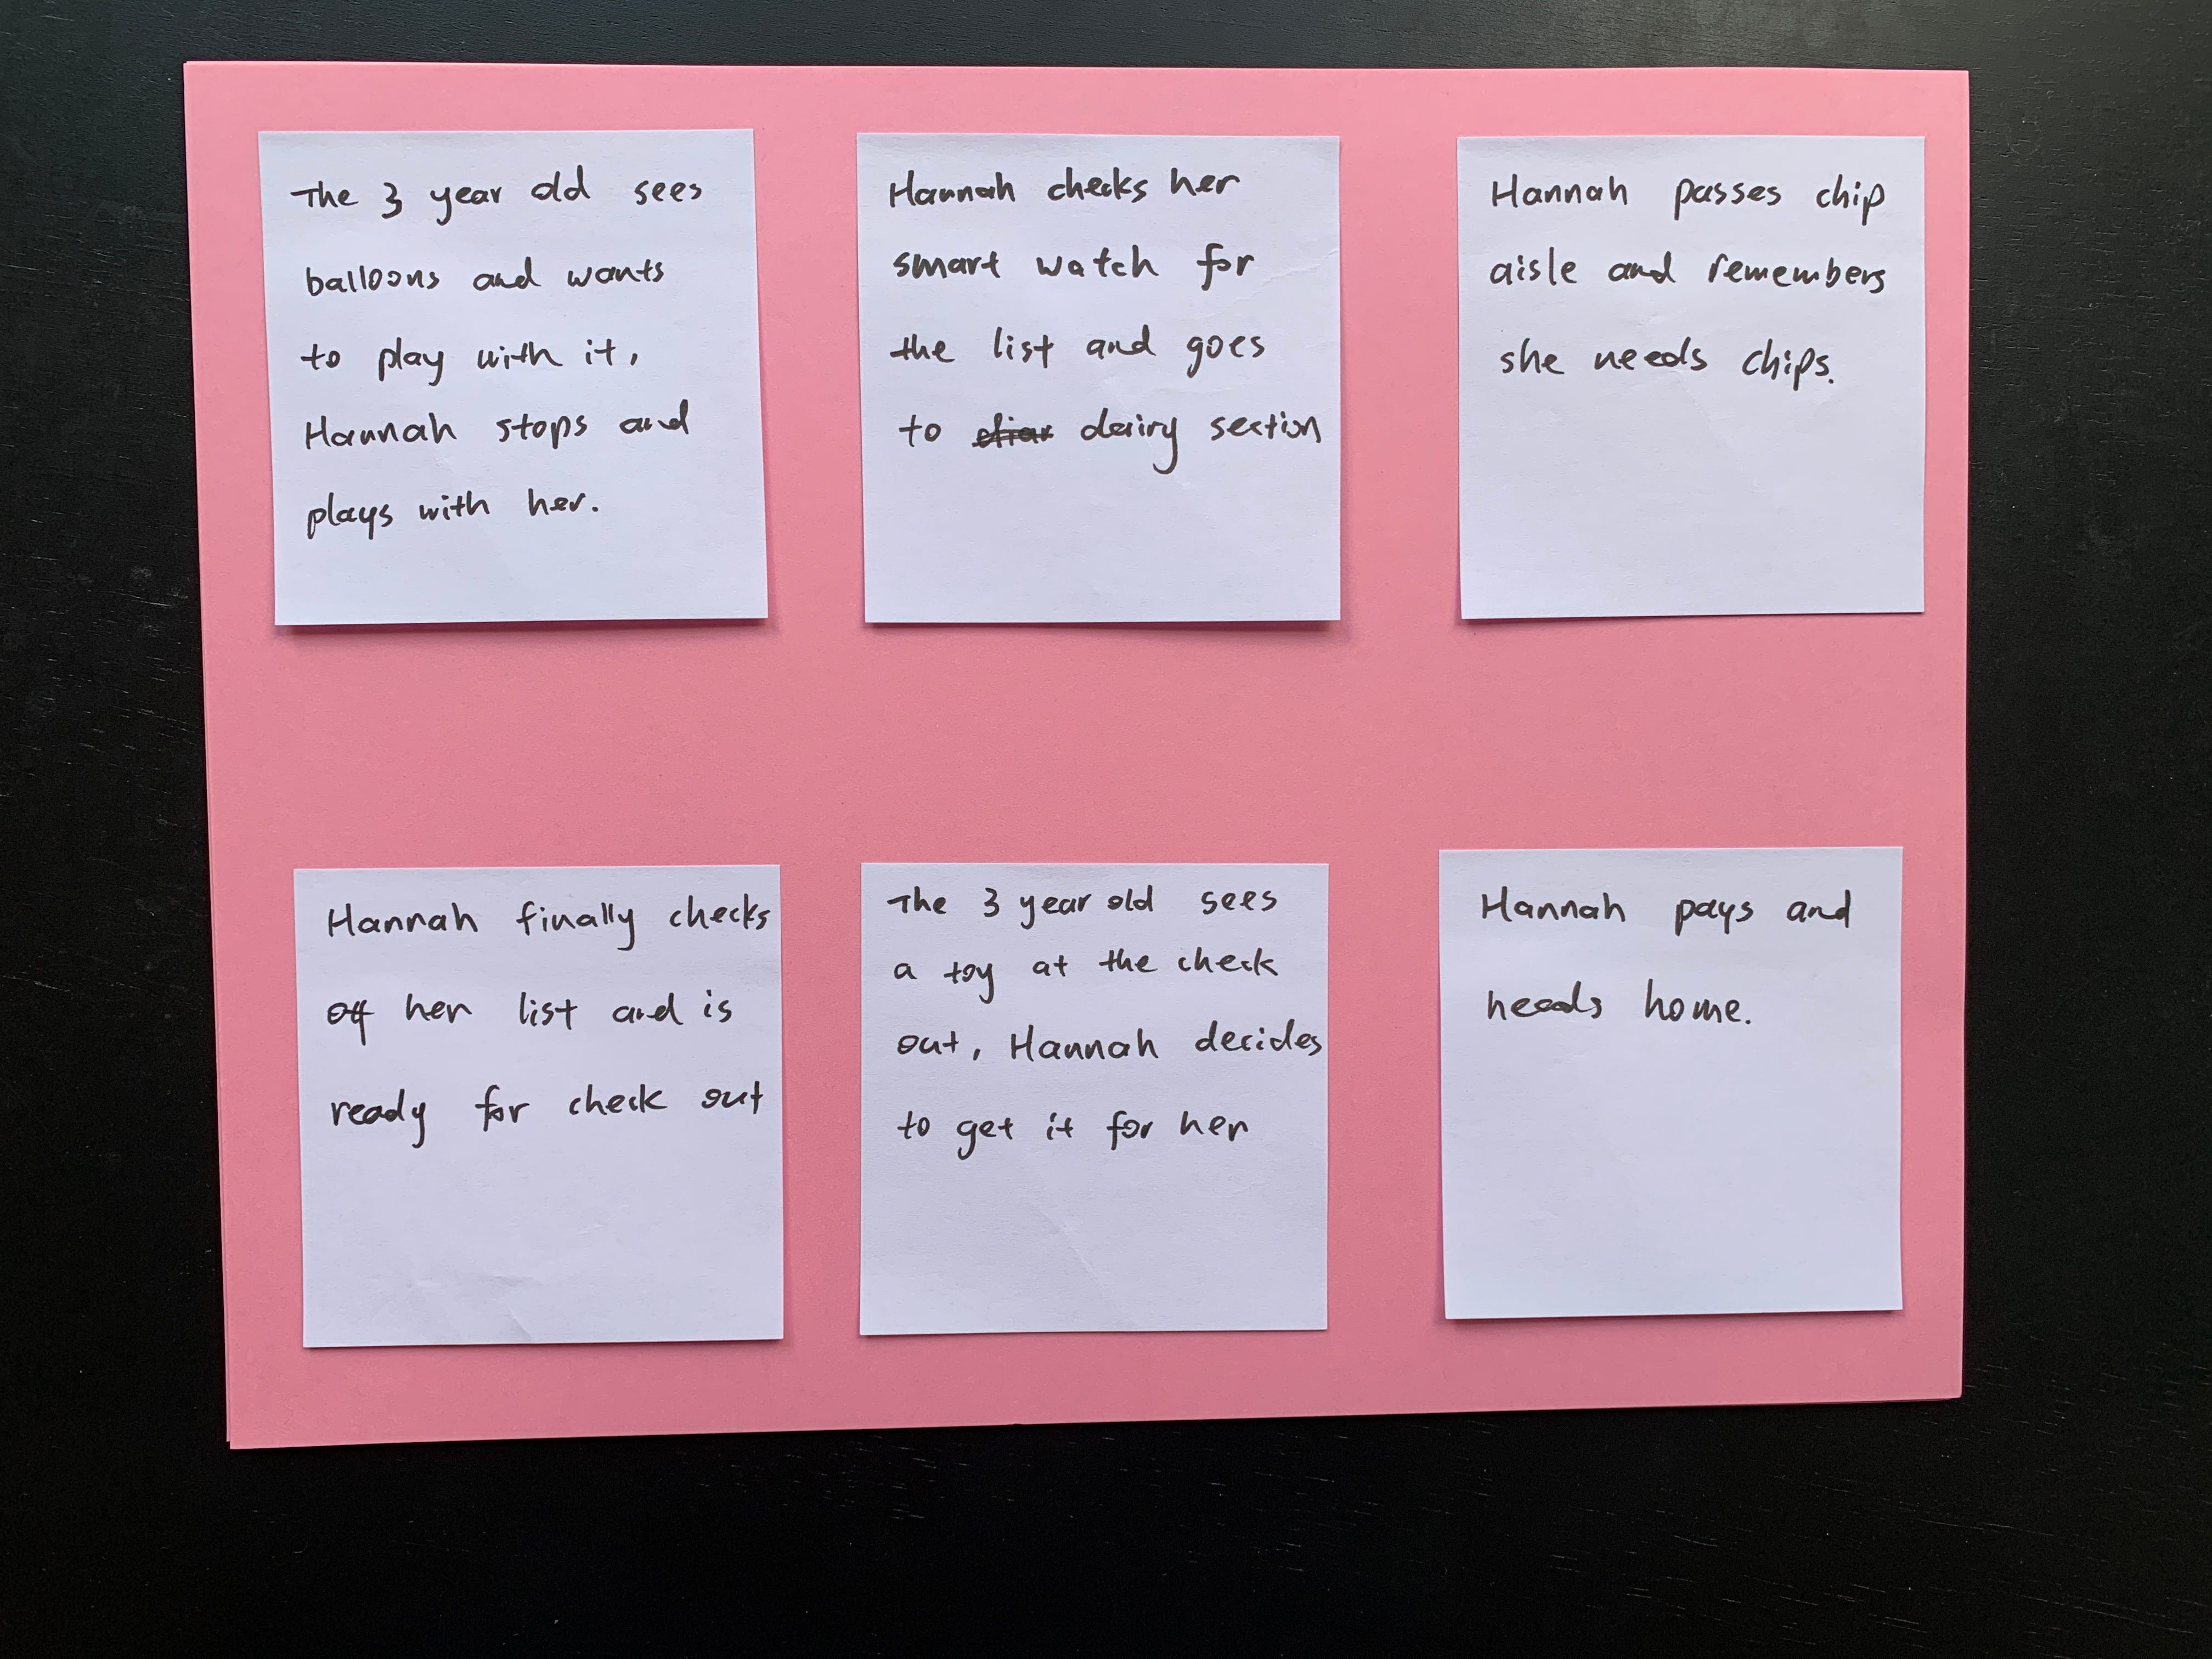 The 3 year old sees
balloons and wants
to play with it,
Hannah stops and
plays with her.
Hannah checks her
smart watch for
the list and goes
to dairy section
Hannah passes chip
aisle and remembers
she needs chips.
Hannah finally checks
off her list and is
ready for check out
The 3 year old sees
a toy at the check
out, Hannah decides
to get it for her
Hannah pays and
heads home.